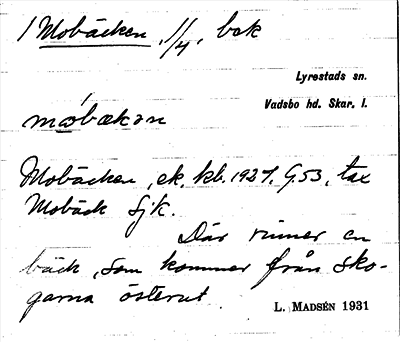 1 Mobäcken, 1/4, bsk
Lyrestads sn.
Vadsbo hd. Skar. l.
mobækən
Mobäcken, ek. kb. 1927, G53, tax
Mobäck Sjk.
Där rinner en
bäck, som kommer från sko-
garna österut.
L. MADSÉN 1931